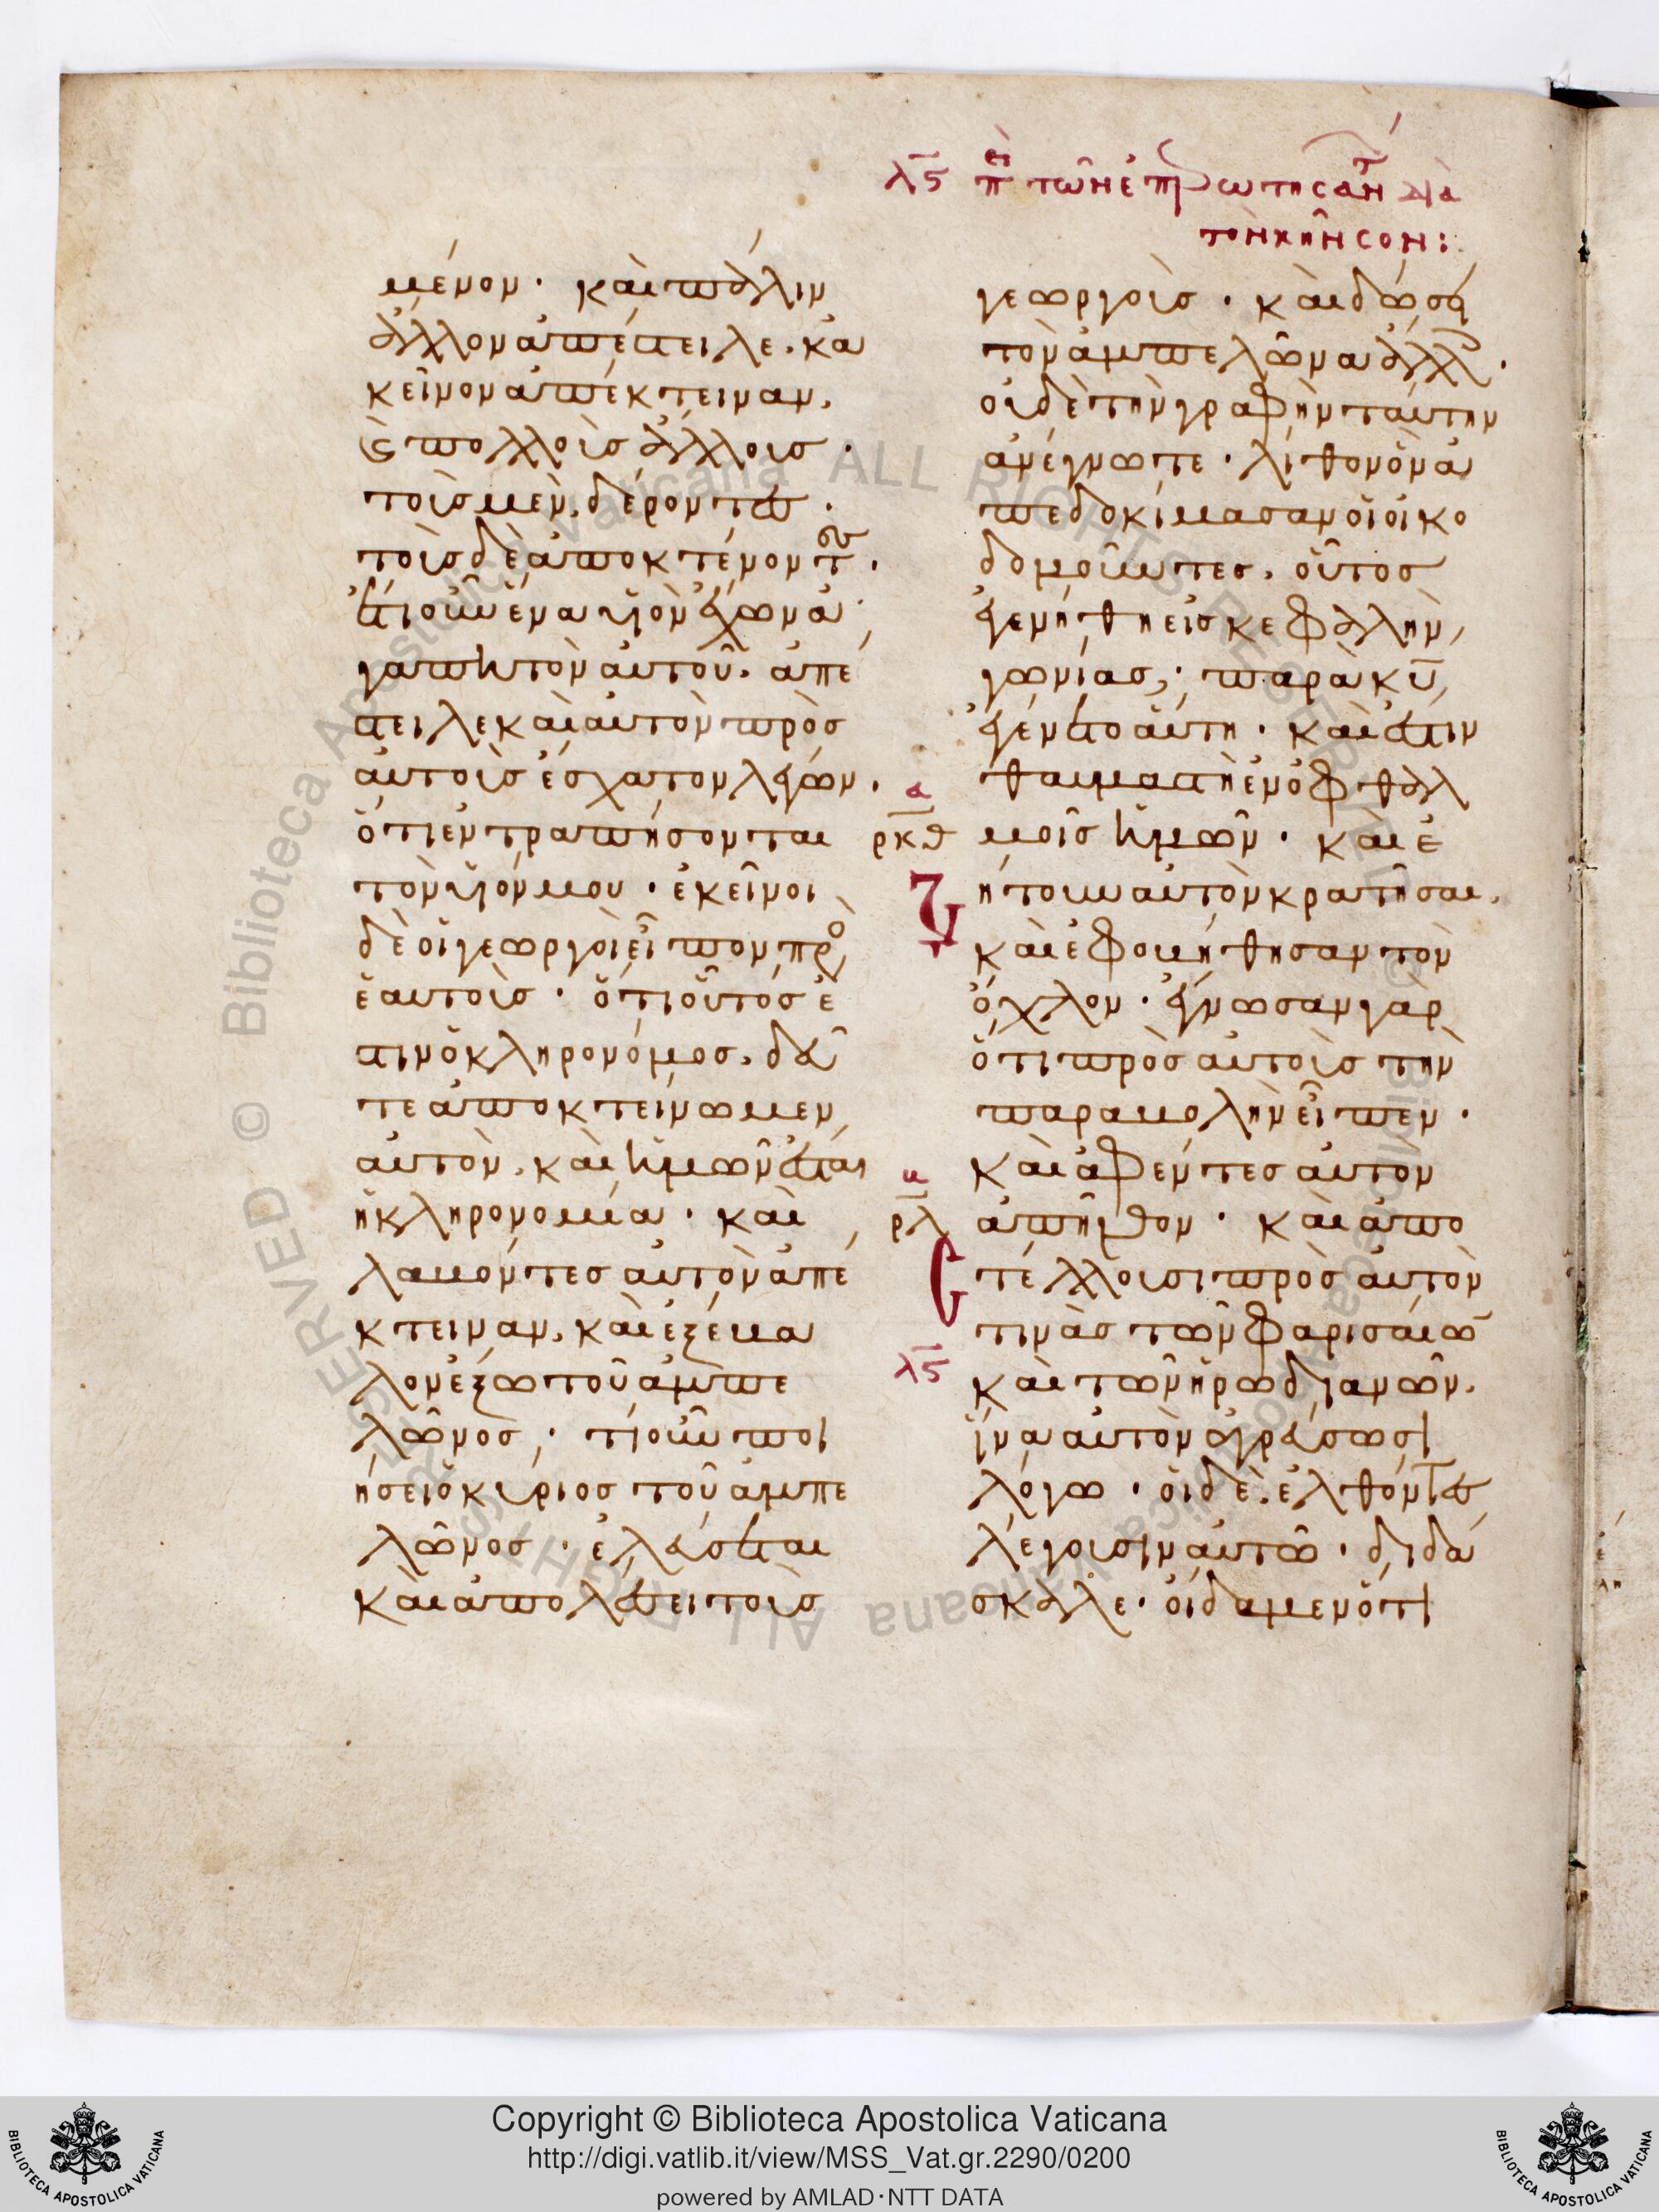 λϛ πει τῶν ἐπερωτησάντ διὰ
τὸν κῆνσον:
μένον· καὶ πάλιν
ἄλλον ἀπέστειλε· κα
κεῖνον ἀπέκτειναν,
καὶ πολλοὺς ἄλλους·
τοὺς μὲν, δέροντες·
τοὺς δὲ ἀποκτένοντες·
ἔτι οὖν ἕνα υἱὸν ἔχων ἀ
γαπητὸν αὐτοῦ· ἀπέ
στειλε καὶ αὐτὸν πρὸς
αὐτοὺς ἔσχατον λέγων·
ὅτι ἐντραπήσονται
τὸν υἱόν μου· ἐκεῖνοι
δὲ οἱ γεωργοὶ εἶπον πρὸ
ἑαυτοὺς· ὅτι οὗτός ἐ
στιν ὁ κληρονόμος, δεῦ
τε ἀποκτείνωμεν
αὐτὸν, καὶ ἡμῶν ἔσται
ἡ κληρονομία· καὶ
λαβόντες αὐτὸν ἀπέ
κτειναν, καὶ ἐξέβα
λον ἔξω τοῦ ἀμπε
λῶνος· τί οὖν ποι
ήσει ὁ κύριος τοῦ ἀμπε
λῶνος· ἐλεύσεται
καὶ ἀπολέσει τοὺς
γεωργοὺς· καὶ δώσει
τὸν ἀμπελῶνα ἄλλ·
οὐδὲ τὴν γραφὴν ταύτην
ἀνέγνωτε· λίθον ὃν ἀ
πεδοκίμασαν οἱ οἰκο
δομοῦντες, οὗτος
ἐγενήθη εἰς κεφαλὴν
γωνίας· παρὰ κυ
ἐγένετο αὕτη· καὶ ἔστιν
θαυμαστὴ ἐν ὀφθαλ
α ρκθ μοῖς ἡμῶν· καὶ ἐ
ζήτουν αὐτὸν κρατῆσαι,
καὶ ἐφοβήθησαν τὸν
ὄχλον· ἔγνωσαν γὰρ
ὅτι πρὸς αὐτοὺς τὴν
παραβολὴν εἶπεν·
καὶ ἀφέντες αὐτὸν
ρλ ἀπῆλθον· καὶ ἀπο
στέλλουσι πρὸς αὐτὸν
τινὰς τῶν φαρισαίω
λϛ καὶ τῶν ἡρωδιανῶν,
ἵνα αὐτὸν ἀγρεύσωσι
λόγω· οἱ δὲ ἐλθόντες
λέγουσιν αὐτῶ· διδά
σκαλε· οἴδαμεν ὅτι
Copyright © Biblioteca Apostolica Vaticana
http://digi.vatlib.it/view/MSS_Vat.gr.2290/0200
powered by AMLAD·NTT DATA
BIBLIOTECA APOSTOLICA VATICANA
BIBLIOTECA APOSTOLICA VATICANA